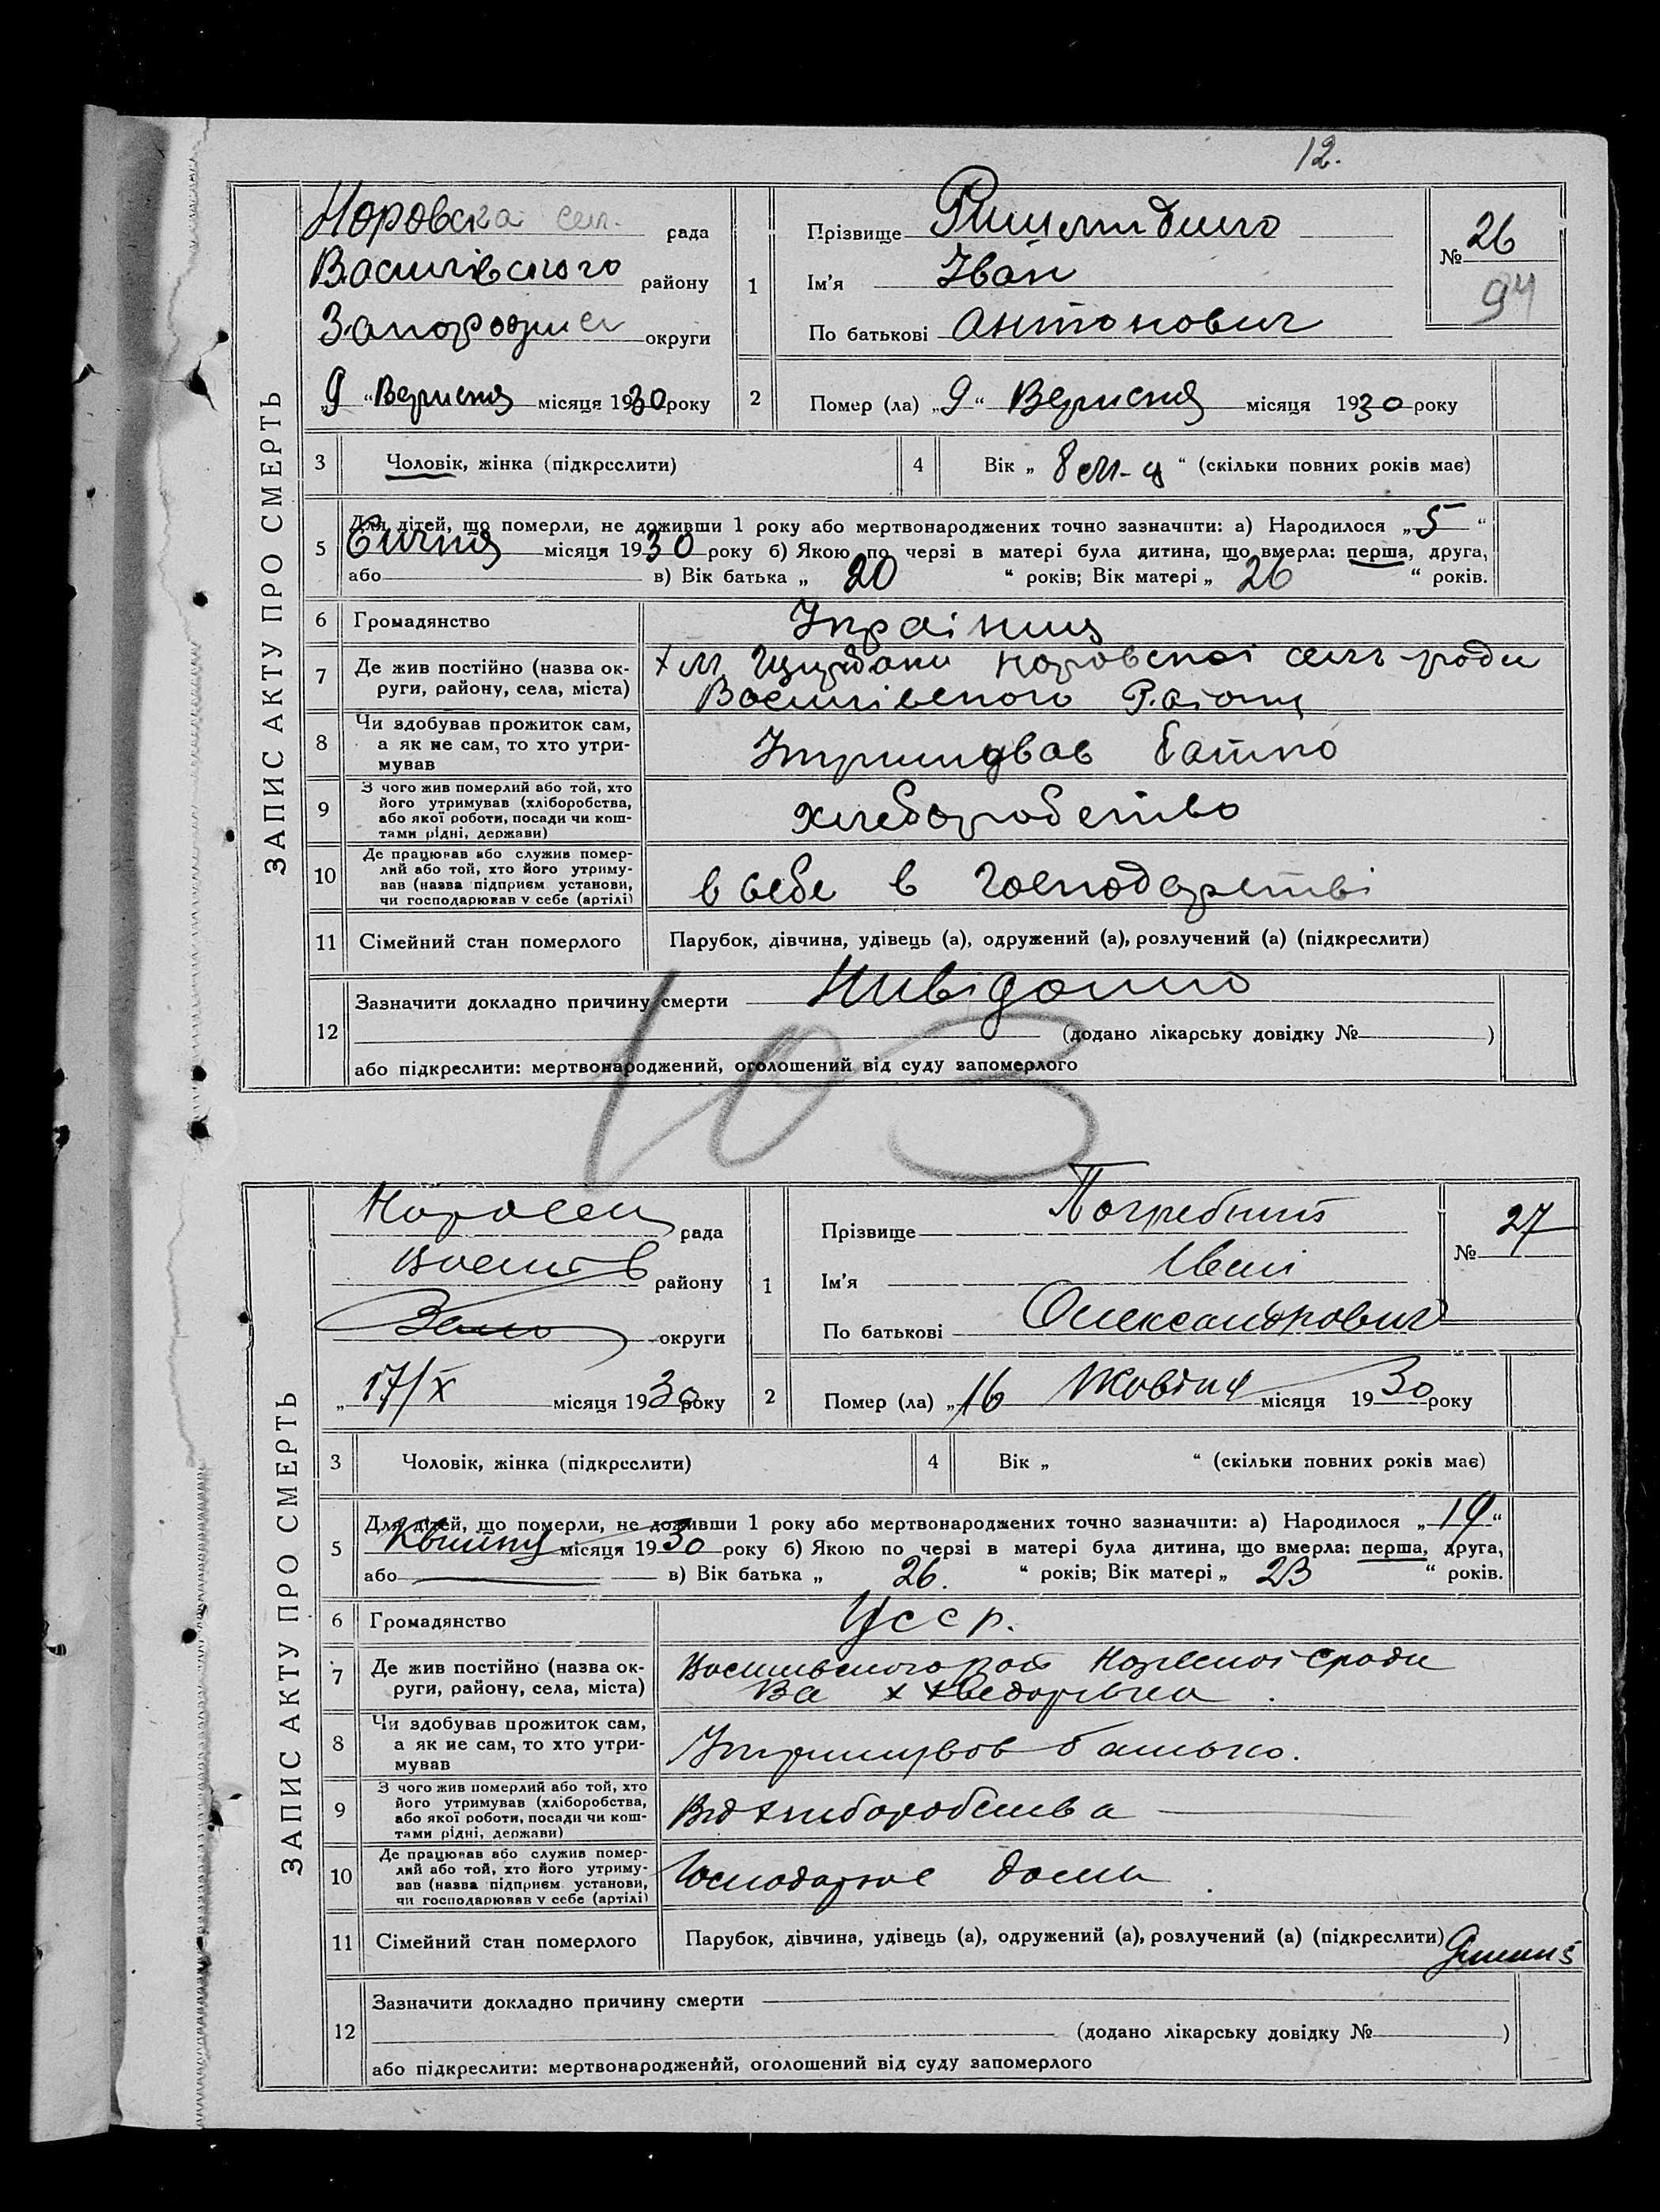 12.
ЗАПИС АКТУ ПРО СМЕРТЬ
Норовска сил. рада
Василівського району
округи
„9“ Вересня місяця 1930 року
1
Прізвище
Ім'я Іван
По батькові Антонович
№ 26
94
2 Помер (ла) „9“ Вересня місяця 1930 року
3 Чоловік, жінка (підкреслити)
4 Вік „8 м-ц“ (скільки повних років має)
5 Для дітей, що померли, не доживши 1 року або мертвонароджених точно зазначити: а) Народилося „5“
Січня місяця 1930 року б) Якою по черзі в матері була дитина, що вмерла: перша, друга,
або в) Вік батька „20“ років; Вік матері „26“ років.
6 Громадянство Українец
7 Де жив постійно (назва ок-
руги, району, села, міста)
Норовскоі силь ради
Василівского Раіону
8 Чи здобував прожиток сам,
а як не сам, то хто утри-
мував
Утримував батько
9 З чого жив померлий або той, хто
його утримував (хліборобства,
або якої роботи, посади чи кош-
тами рідні, держави)
хлеборобство
10 Де працював або служив помер-
лий або той, хто його утриму-
вав (назва підприєм. установи,
чи господарював у себе (артілі)
в себе в господарстві
11 Сімейний стан померлого Парубок, дівчина, удівець (а), одружений (а), розлучений (а) (підкреслити)
12 Зазначити докладно причину смерти Нивідомо
(додано лікарську довідку № )
або підкреслити: мертвонароджений, оголошений від суду запомерлого
103
ЗАПИС АКТУ ПРО СМЕРТЬ
рада
району
округи
„17/X місяця 1930 року
1
Прізвище Погребний
Ім'я Іван
По батькові Олександрович
№ 27
2 Помер (ла) „16 Жовтня місяця 1930 року
3 Чоловік, жінка (підкреслити)
4 Вік „ “ (скільки повних років має)
5 Для дітей, що померли, не доживши 1 року або мертвонароджених точно зазначити: а) Народилося „19“
Квітня місяця 1930 року б) Якою по черзі в матері була дитина, що вмерла: перша, друга,
або в) Вік батька „26.“ років; Вік матері „23“ років.
6 Громадянство Усср.
7 Де жив постійно (назва ок-
руги, району, села, міста)
х Хведорівка
8 Чи здобував прожиток сам,
а як не сам, то хто утри-
мував
Утримував батько.
9 З чого жив померлий або той, хто
його утримував (хліборобства,
або якої роботи, посади чи кош-
тами рідні, держави)
Від хліборобства
10 Де працював або служив помер-
лий або той, хто його утриму-
вав (назва підприєм. установи,
чи господарював у себе (артілі)
Господарює дома.
11 Сімейний стан померлого Парубок, дівчина, удівець (а), одружений (а), розлучений (а) (підкреслити)
12 Зазначити докладно причину смерти
(додано лікарську довідку № )
або підкреслити: мертвонароджений, оголошений від суду запомерлого